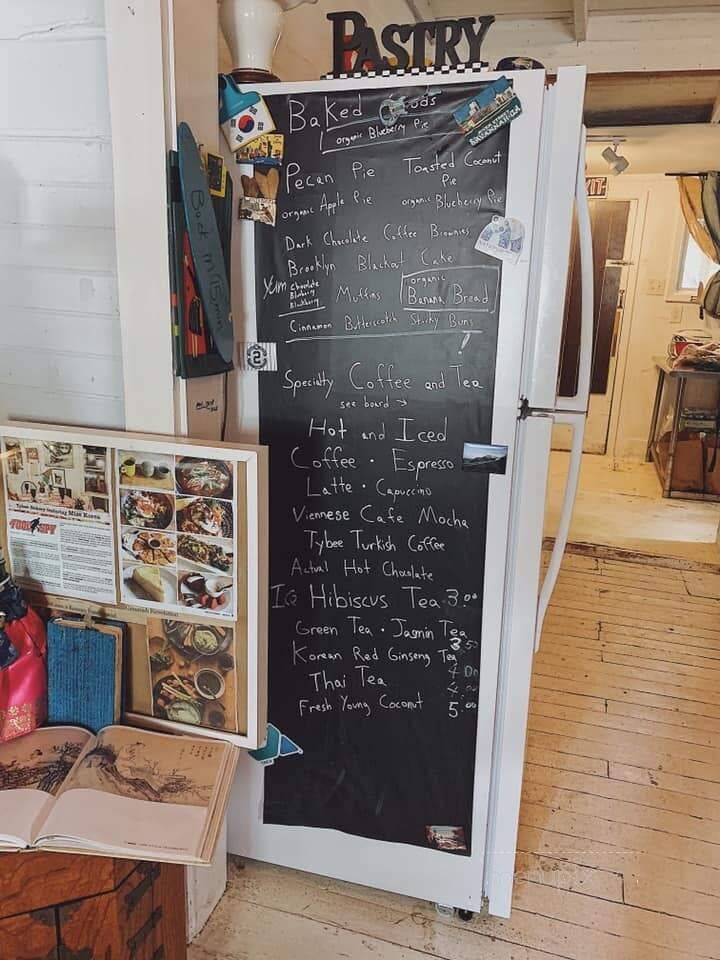 PASTRY
Baked Goods
organic Blueberry Pie
SAVANNAH, GA
Pecan Pie
Toasted Coconut
Pie
organic Apple Pie
organic Blueberry Pie
Dark Chocolate Coffee Brownies
Brooklyn Blackout Cake
Yum
Chocolate
Blueberry
Blackberry
Muffins
organic
Banana Bread
Cinnamon Butterscotch Sticky Buns
!
Specialty Coffee and Tea
see board →
Hot and Iced
Coffee • Espresso
Latte • Capuccino
Viennese Cafe Mocha
Tybee Turkish Coffee
Actual Hot Chocolate
Hibiscus Tea 3.00
Green Tea • Jasmin Tea
3.50
Korean Red Ginseng Tea
4.00
Thai Tea
4.00
Fresh Young Coconut 5.00
Back in 15 min
EXIT
2
FOOD SPY
Tybee Bakery featuring Miss Korea